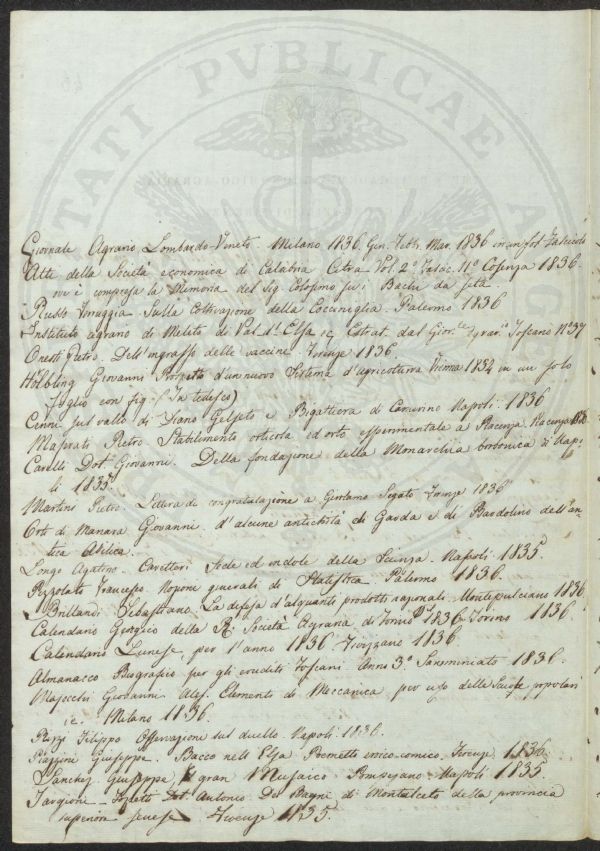 PROSPERITATI PVBLICAE AVGENDAE
Giornale Agrario Lombardo-Veneto. Milano 1836. Gen. Febb. Mar. 1836 in un sol Fascicolo
Atti della Società economica di Calabria Citra Vol. 2° Fasc. 11° Cosenza 1836
ove è compresa la Memoria del Sig. Colosimo su i Bachi da seta.
Rubbo Sulla Coltivazione della Cocciniglia. Palermo 1836
Instituto agrario di Meleto di Val d'Elsa Estrat. dal Gior.le Agrar.o Toscano N° 37
Onesti Pietro. Dell'ingrasso delle vaccine. Firenze 1836.
Hölbling Giovanni Prospetto d'un nuovo Sistema d'agricoltura Vienna 1834 in un solo
foglio con fig. (In tedesco)
Cenni sul vallo di Diano Gelseto e Bigattiera di Napoli. 1836
Pietro Stabilimento orticola ed orto esperimentale a Piacenza. Piacenza 1836
Carelli Dot. Giovanni. Della fondazione della Monarchia borbonica di Napo
li 1835.
Martini Pietro. Lettera di congratulazione a Girolamo Segato Firenze 1836
Orti di Manara Giovanni. d'alcune antichità di Garda e di Bardolino dell'an
tica Atilica.
Longo Agatino. Caratteri Sede ed indole della Scienza. Napoli. 1835.
Francesco Nozioni generali di Statistica. Palermo 1836.
Brillandi Sebastiano. La difesa d'alquanti prodotti nazionali. Montepulciano 1836
Calendario Georgico della R. Società Agraria di Torino pel 1836. Torino 1836
Calendario Lunese per l'anno 1836 Fivizzano 1836
Almanacco Biografico per gli eruditi Toscani Anno 3° Sanminiato 1836.
Majocchi Giovanni Ales. Elementi di Meccanica per uso delle Scuole popolari
Milano 1836.
Rizzi Filippo Osservazioni sul duello. Napoli 1836.
Piazzini Giuseppe. Bacco nell'Elsa Poemetto eroico-comico. Firenze 1836.
Sanchez Giuseppe. Il gran Musaico Pompejano Napoli 1835
Targioni-Tozzetti Dot. Antonio. Dei Bagni di Montalceto della provincia
superiore senese Firenze 1835.